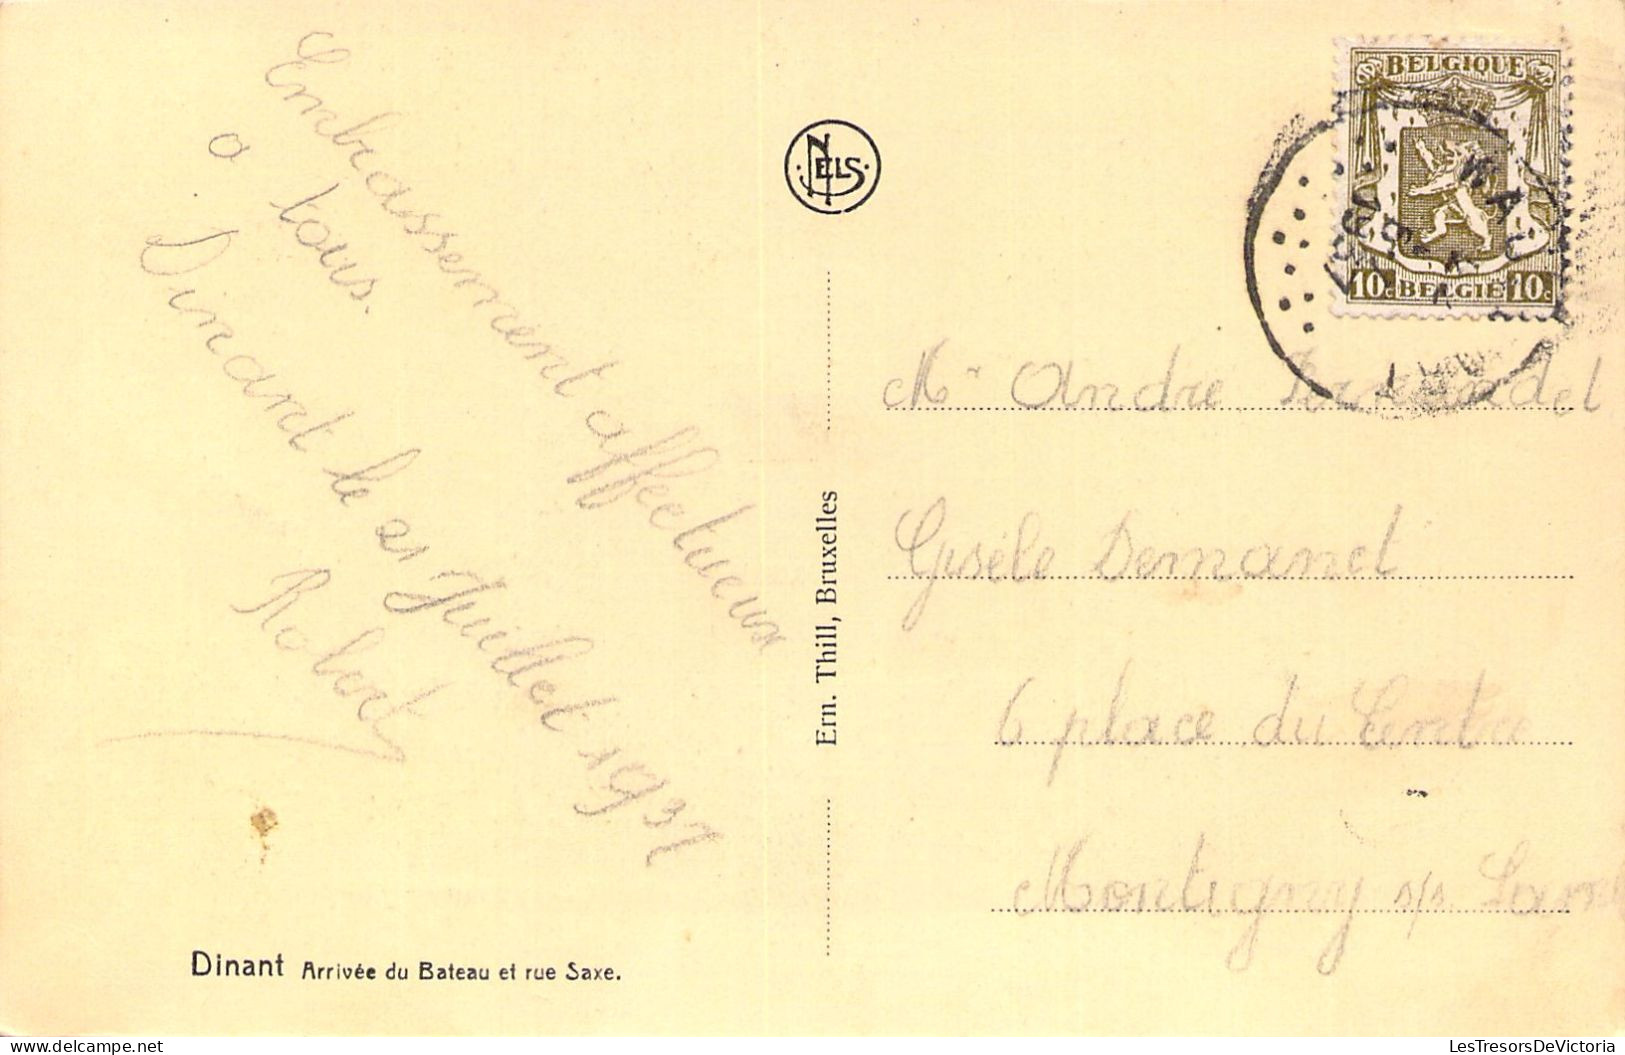 Embrassement affectueux
a tous.
Dinant le 21 Juillet 1937
Robert
NELS
Ern. Thill, Bruxelles
BELGIQUE
10c BELGIË 10c
1937
Mr Andre
Gisèle Demanet
6 place du Centre
Montigny s/s
Dinant Arrivée du Bateau et rue Saxe.
LesTresorsDeVictoria.com